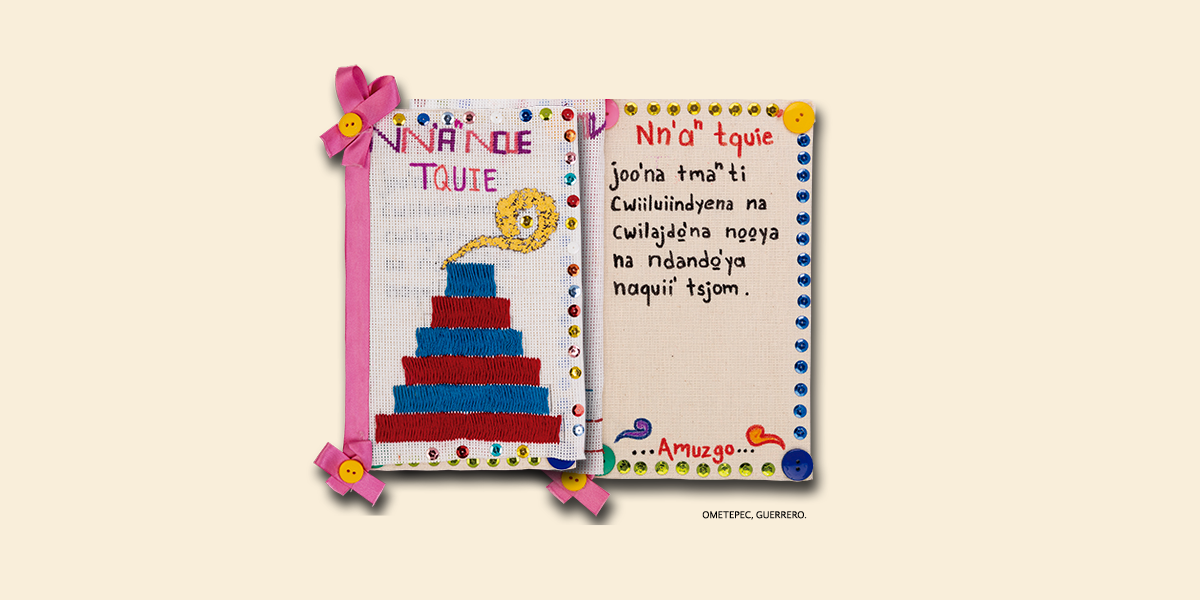 NN'Aⁿ NCUE
TQUIE
Nn'aⁿ tquie
joo'na tmaⁿ ti
Cwiiluiindyena na
cwilajdo̱'na no̱o̱ya
na ndando̱'ya
naquii' tsjom.
...Amuzgo...
OMETEPEC, GUERRERO.